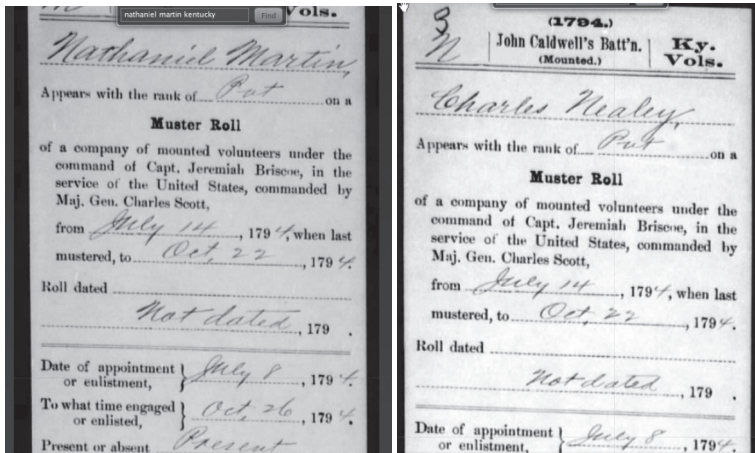 nathaniel martin kentucky Find
Vols.
Nathaniel Martin,
Appears with the rank of Pvt on a
Muster Roll
of a company of mounted volunteers under the
command of Capt. Jeremiah Briscoe, in the
service of the United States, commanded by
Maj. Gen. Charles Scott,
from July 14, 1794, when last
mustered, to Oct, 22, 1794.
Roll dated
Not dated, 179 .
Date of appointment
or enlistment, } July 8, 1794.
To what time engaged
or enlisted, } Oct, 26, 1794.
Present or absent Present
3
N
(1794.)
John Caldwell's Batt'n.
(Mounted.)
Ky.
Vols.
Charles Nealey,
Appears with the rank of Pvt on a
Muster Roll
of a company of mounted volunteers under the
command of Capt. Jeremiah Briscoe, in the
service of the United States, commanded by
Maj. Gen. Charles Scott,
from July 14, 1794, when last
mustered, to Oct, 22, 1794.
Roll dated
Not dated, 179 .
Date of appointment
or enlistment, } July 8, 1794.